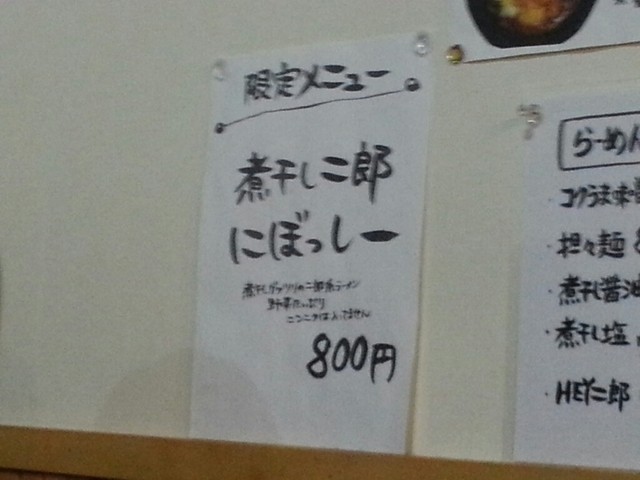 限定メニュー
煮干し二郎
にぼっしー
煮干しガッツリの二郎系ラーメン
野菜たっぷり
ニンニクは入ってません
800円
らーめん
・コクうま味
・担々麺
・煮干し醤油
・煮干し塩
・HEY二郎